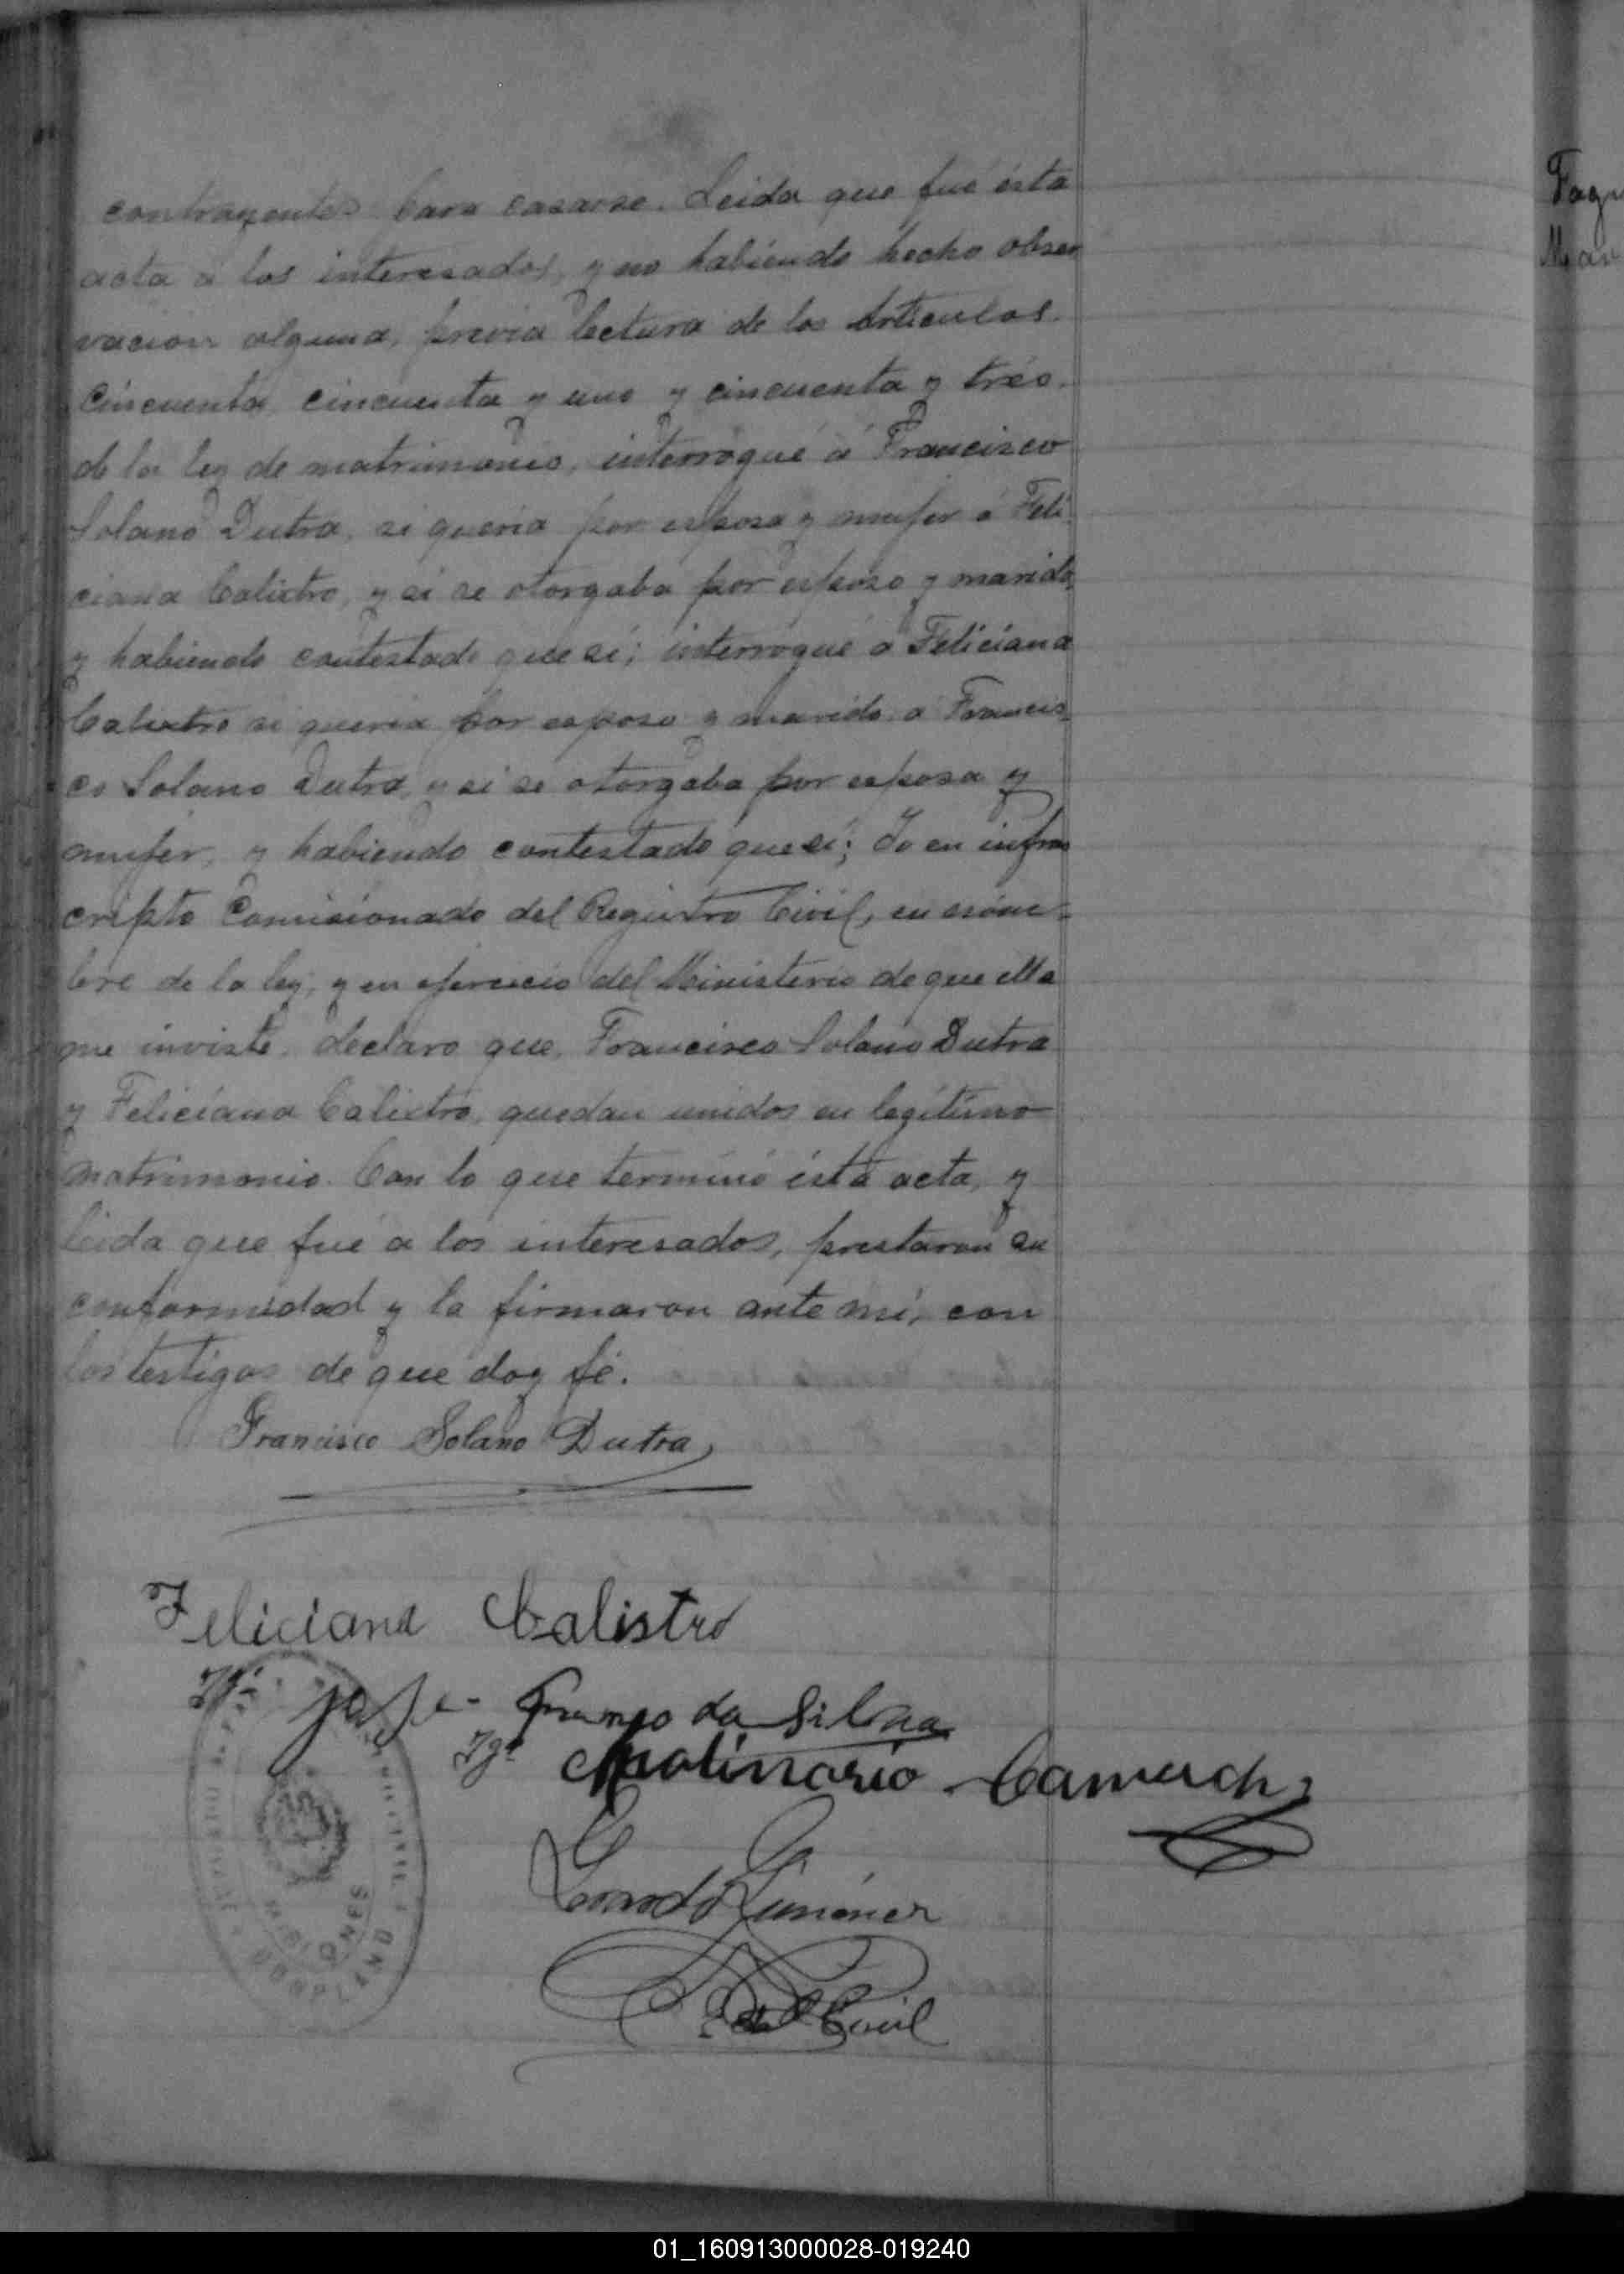 contrayentes para casarse. Leida que fué ésta
acta a los interesados, y no habiendo hecho obser
vacion alguna, previa lectura de los Articulos
Cincuenta, cincuenta y uno y cincuenta y tres
de la ley de matrimonio, interrogué á Francisco
Solano Dutra, si queria por esposa y mujer á Feli
ciana Calixtro, y si se otorgaba por esposo y marido,
y habiendo contestado que si; interrogué a Feliciana
Calixtro si queria por esposo y marido a Francis
co Solano Dutra, y si se otorgaba por esposa y
mujer, y habiendo contestado que si; Yo en infras
cripto Comisionado del Registro Civil, en nóm-
bre de la ley, y en ejercicio del Ministerio de que ella
me inviste declaro que, Francisco Solano Dutra
y Feliciana Calixtro, quedan unidos en legítimo
matrimonio. Con lo que terminó ésta acta, y
leida que fué a los interesados, prestaron su
conformidad y la firmaron ante mi, con
los testigos de que doy fé.
Francisco Solano Dutra
Feliciana Calistro
Tgo José da Silva
Tgo Camach
Jiménez
Civil
MISIONES
BONPLAND
01_160913000028-019240